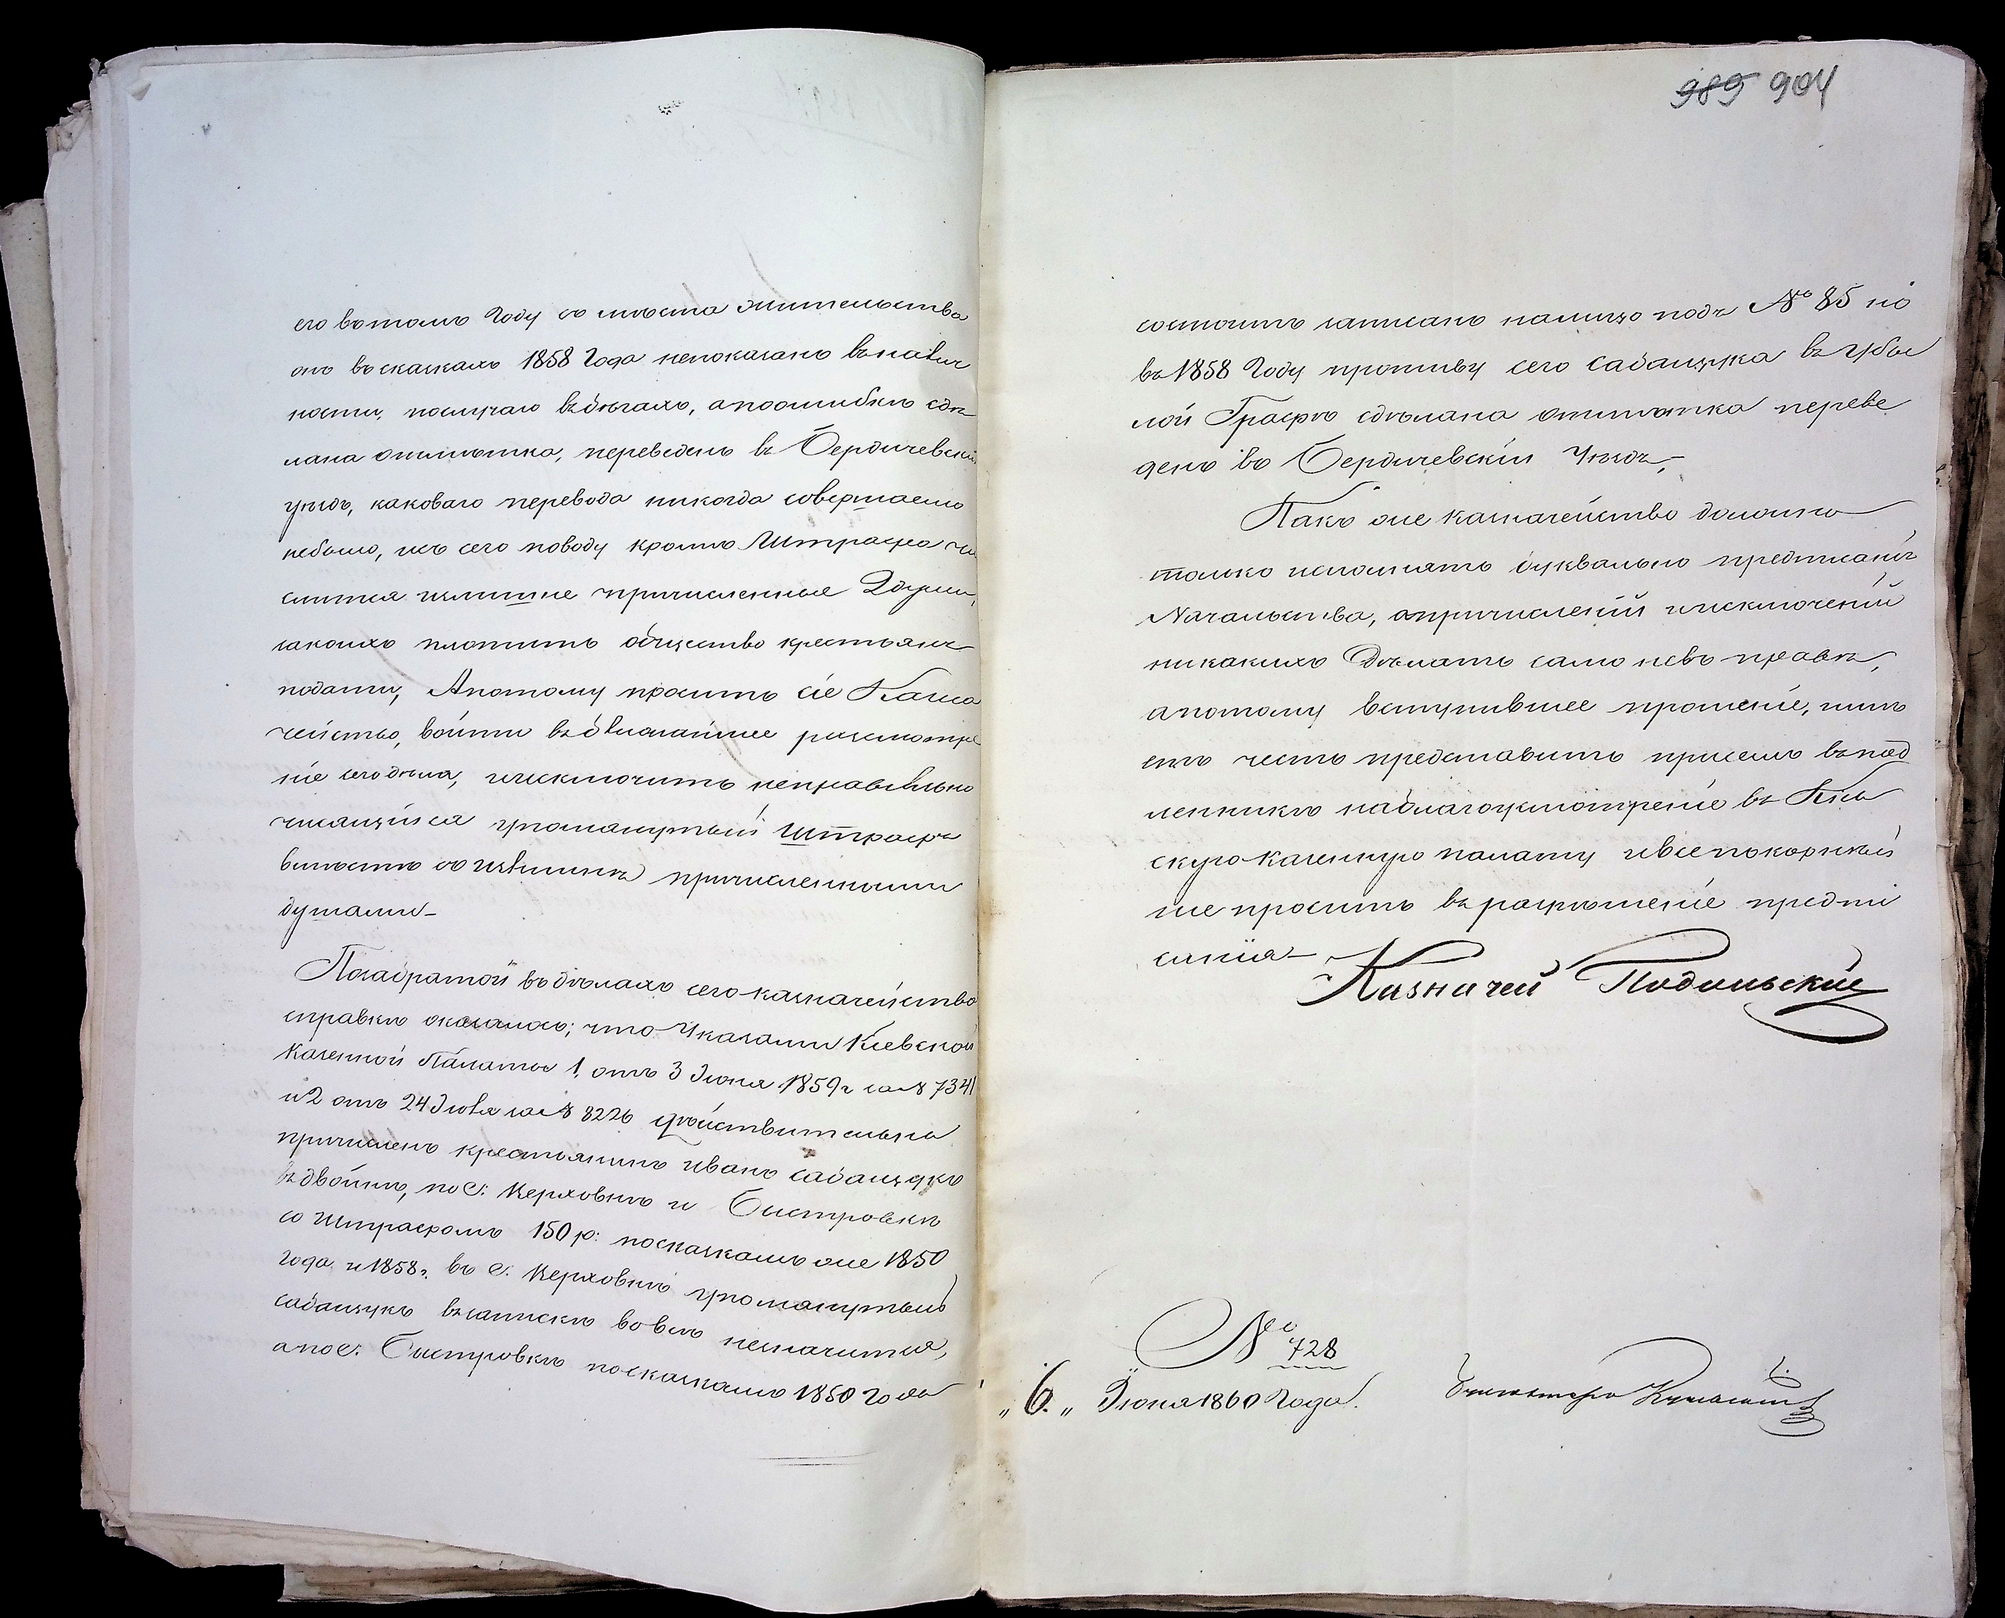 его въ томъ году со мѣста жительства
онъ въ сказкахъ 1858 года непоказанъ въ налич
ности, послучаю въ бѣгахъ, а поошибкѣ сдѣ
лана отмѣтка, переведенъ въ Бердичевскій
уѣздъ, каковаго перевода никогда совершаемо
небыло, изъ сего поводу кромѣ Штрафа чи
слится излишне причисленные 2 души,
закоихъ платитъ общество крестьянъ
подати, Апотому проситъ сіе Казна
чейство, войти въ ближайшее разсмотрѣ
ніе сего дѣла, и исключить неправильно
числящійся упомянутый штрафъ
вмѣстѣ со излишнѣ причисленными
душами
Позабратой въ дѣлахъ сего казначейства
справкѣ оказалось; что Указами Кіевской
Казенной Палаты 1, отъ 3 Іюня 1859 г за № 7341
и 2 отъ 24 Іюля за № 8226 дѣйствительно
причисленъ крестьянинъ Иванъ Сабащукъ
въ двойнѣ, по с: Верховнѣ и Быстровкѣ
со штрафомъ 150 р: посказкамъ оне 1850
года и 1858 г. въ с. Верховнѣ упомянутый
сабащукъ въ запискѣ вовсѣ незначится,
апос: Быстровкѣ посказкамъ 1850 года
989 904
состоитъ записанъ налицо подъ № 85 но
въ 1858 Году противу сего сабащука въ убы
лой Графѣ сдѣлана отмѣтка переве
денъ въ Бердичевскій Уѣздъ,
Какъ оне казначейство должно
только исполнять буквально предписанія
Начальства, а причисленій и исключеній
никакихъ Дѣлать само невъ правѣ,
апотому вступившее прошеніе, имѣ
етъ честь представить присемъ въ под
ленникѣ на благоусмотрѣніе въ Кіев
скую казенную палату и всепокорнѣй
ше проситъ въ разрѣшеніе предпи
санія
Казначей Подольскій
№ 728
„6„ Іюня 1860 Года.
Бухгалтеръ